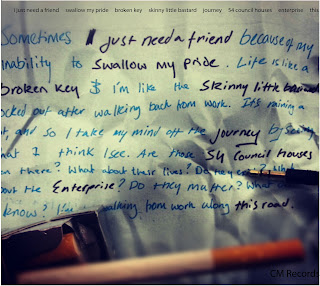 I just need a friend swallow my pride broken key skinny little bastard journey 54 council houses enterprise this
Sometimes I just need a friend because of my
inability to swallow my pride. Life is like a
broken key & I'm like the skinny little bastard
locked out after walking back from work. It's raining a
and so I take my mind off the journey by
what I think I see. Are those 54 Council Houses
there? What about their lives? Do they
the Enterprise? Do they matter? What
know? I'm walking from work along this road.
CM Records